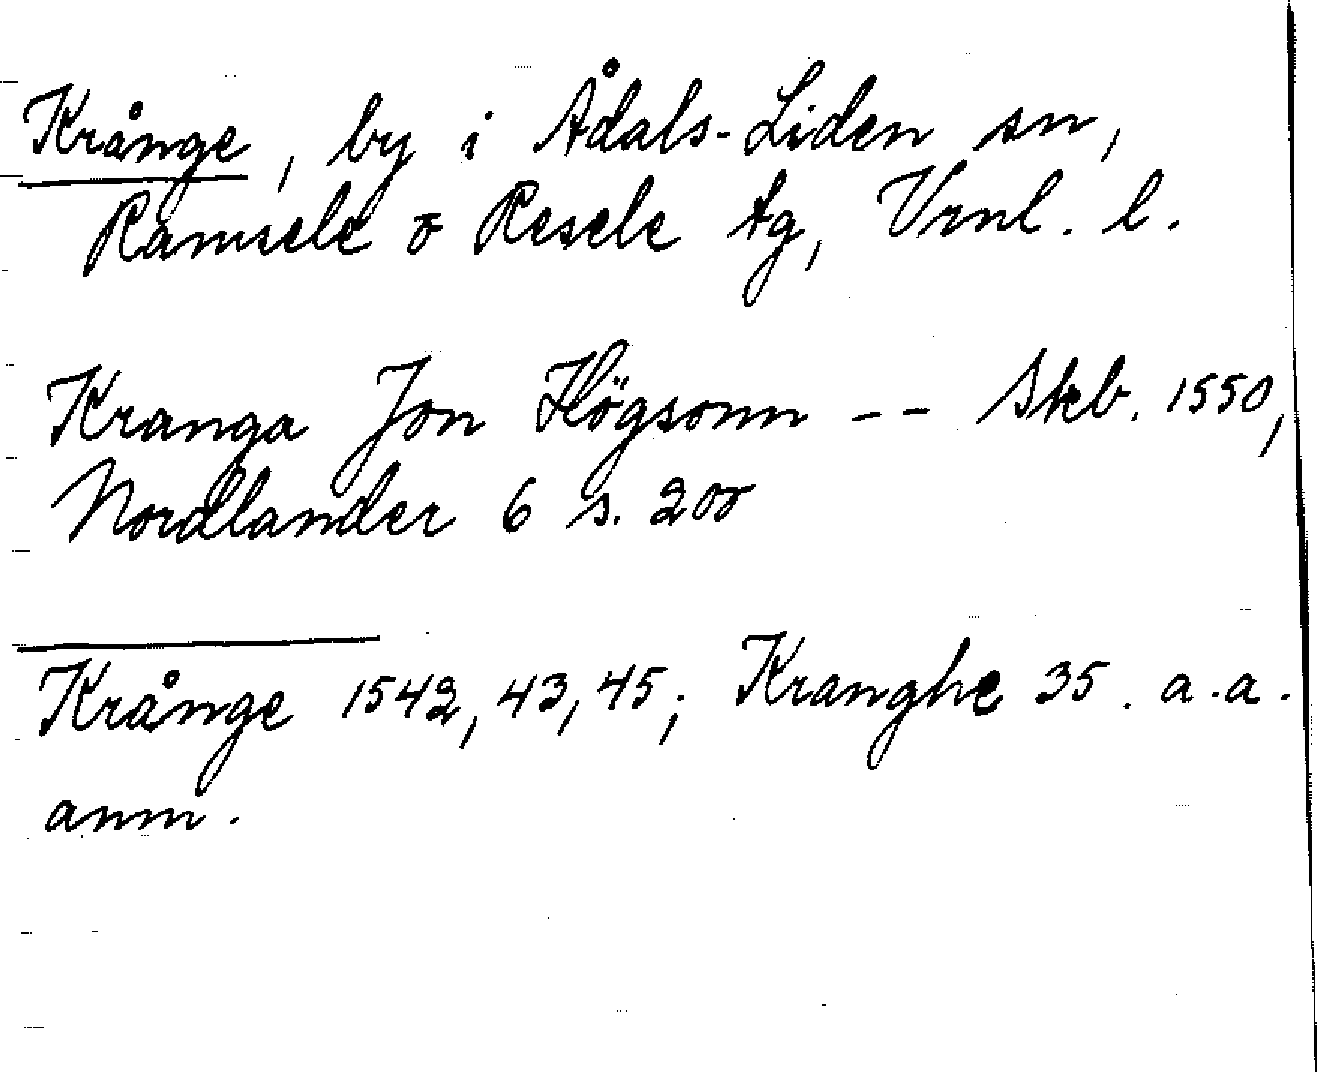 Krånge, by i Ådals-Liden sn,
Ramsele o Resele tg, Vrnl. l.
Kranga Jon Högsonn -- Skb. 1550,
Nordlander 6 s. 200
Krånge 1542, 43, 45; Kranghe 35. a.a.
anm.